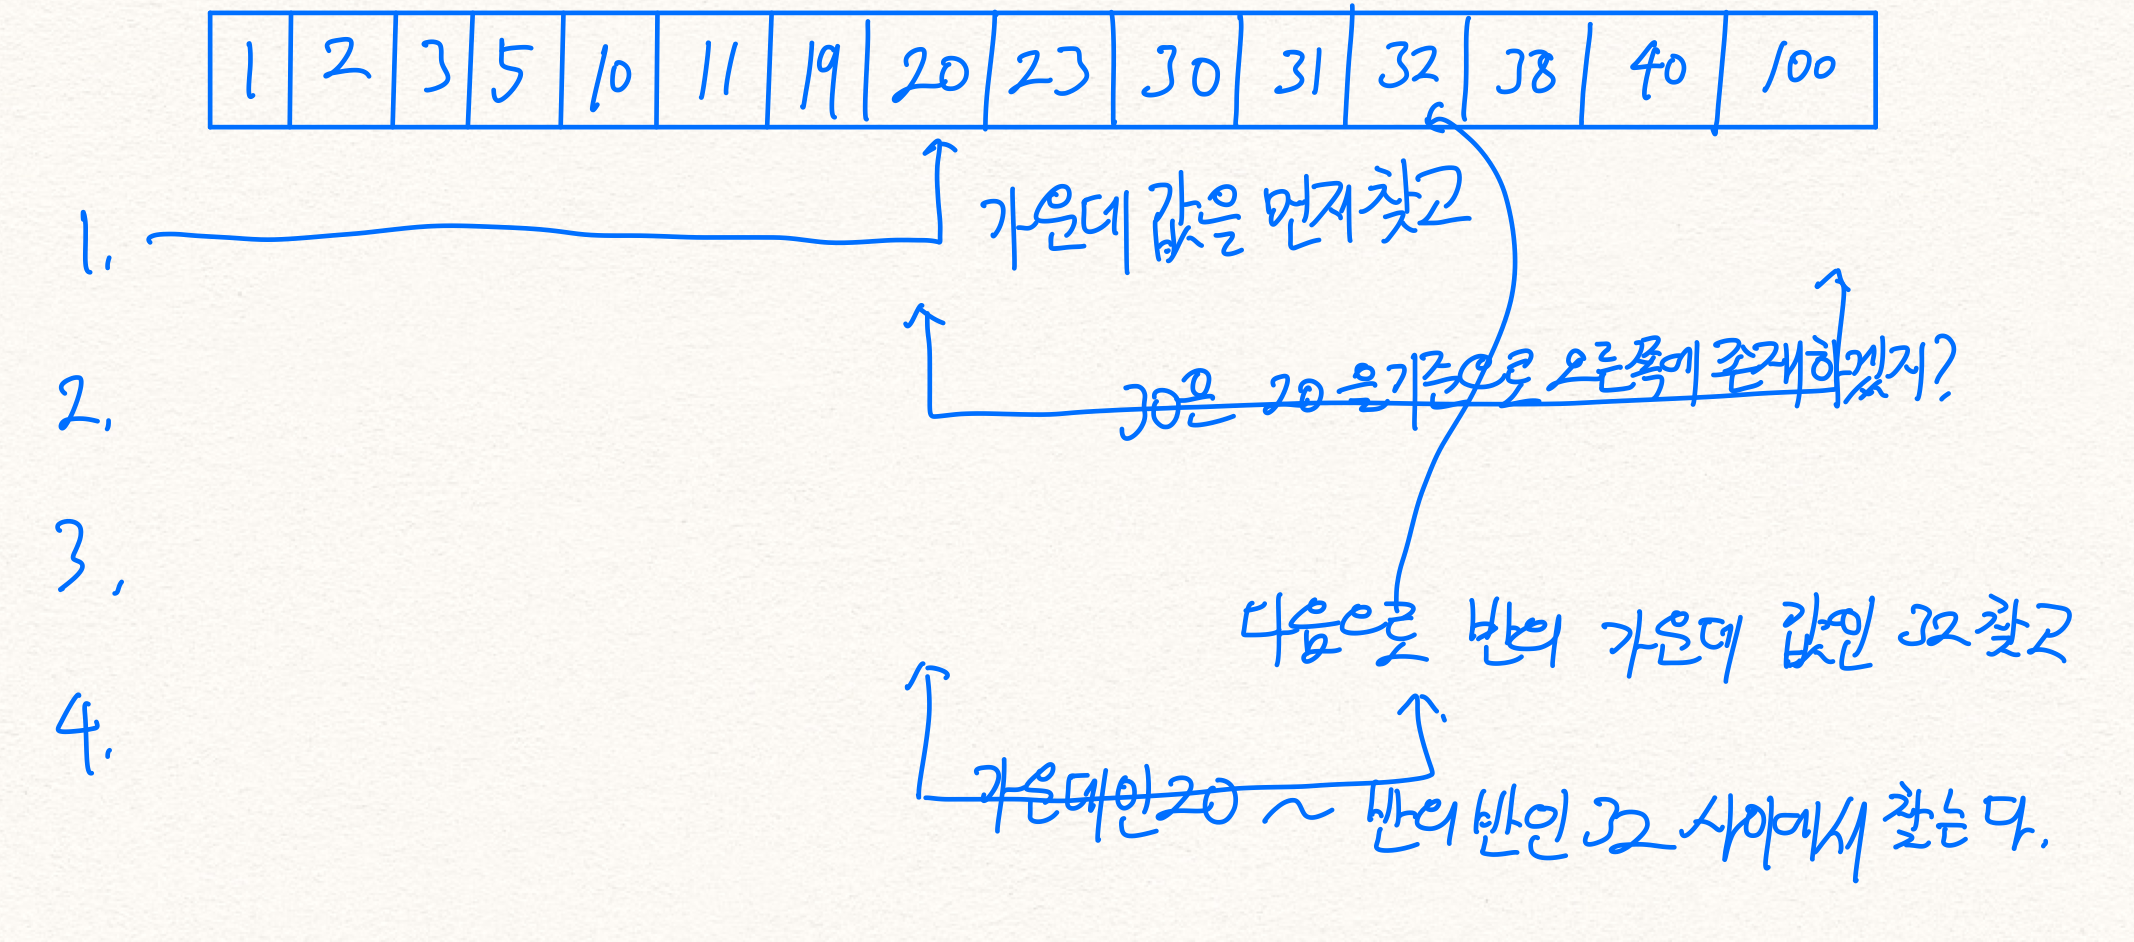 1 2 3 5 10 11 19 20 23 30 31 32 38 40 100
1. 가운데 값을 먼저 찾고
2. 30은 20을 기준으로 오른쪽에 존재하겠지?
3. 다음으로 반의 가운데 값인 32 찾고
4. 가운데인 20 ~ 반의 반인 32 사이에서 찾는다.